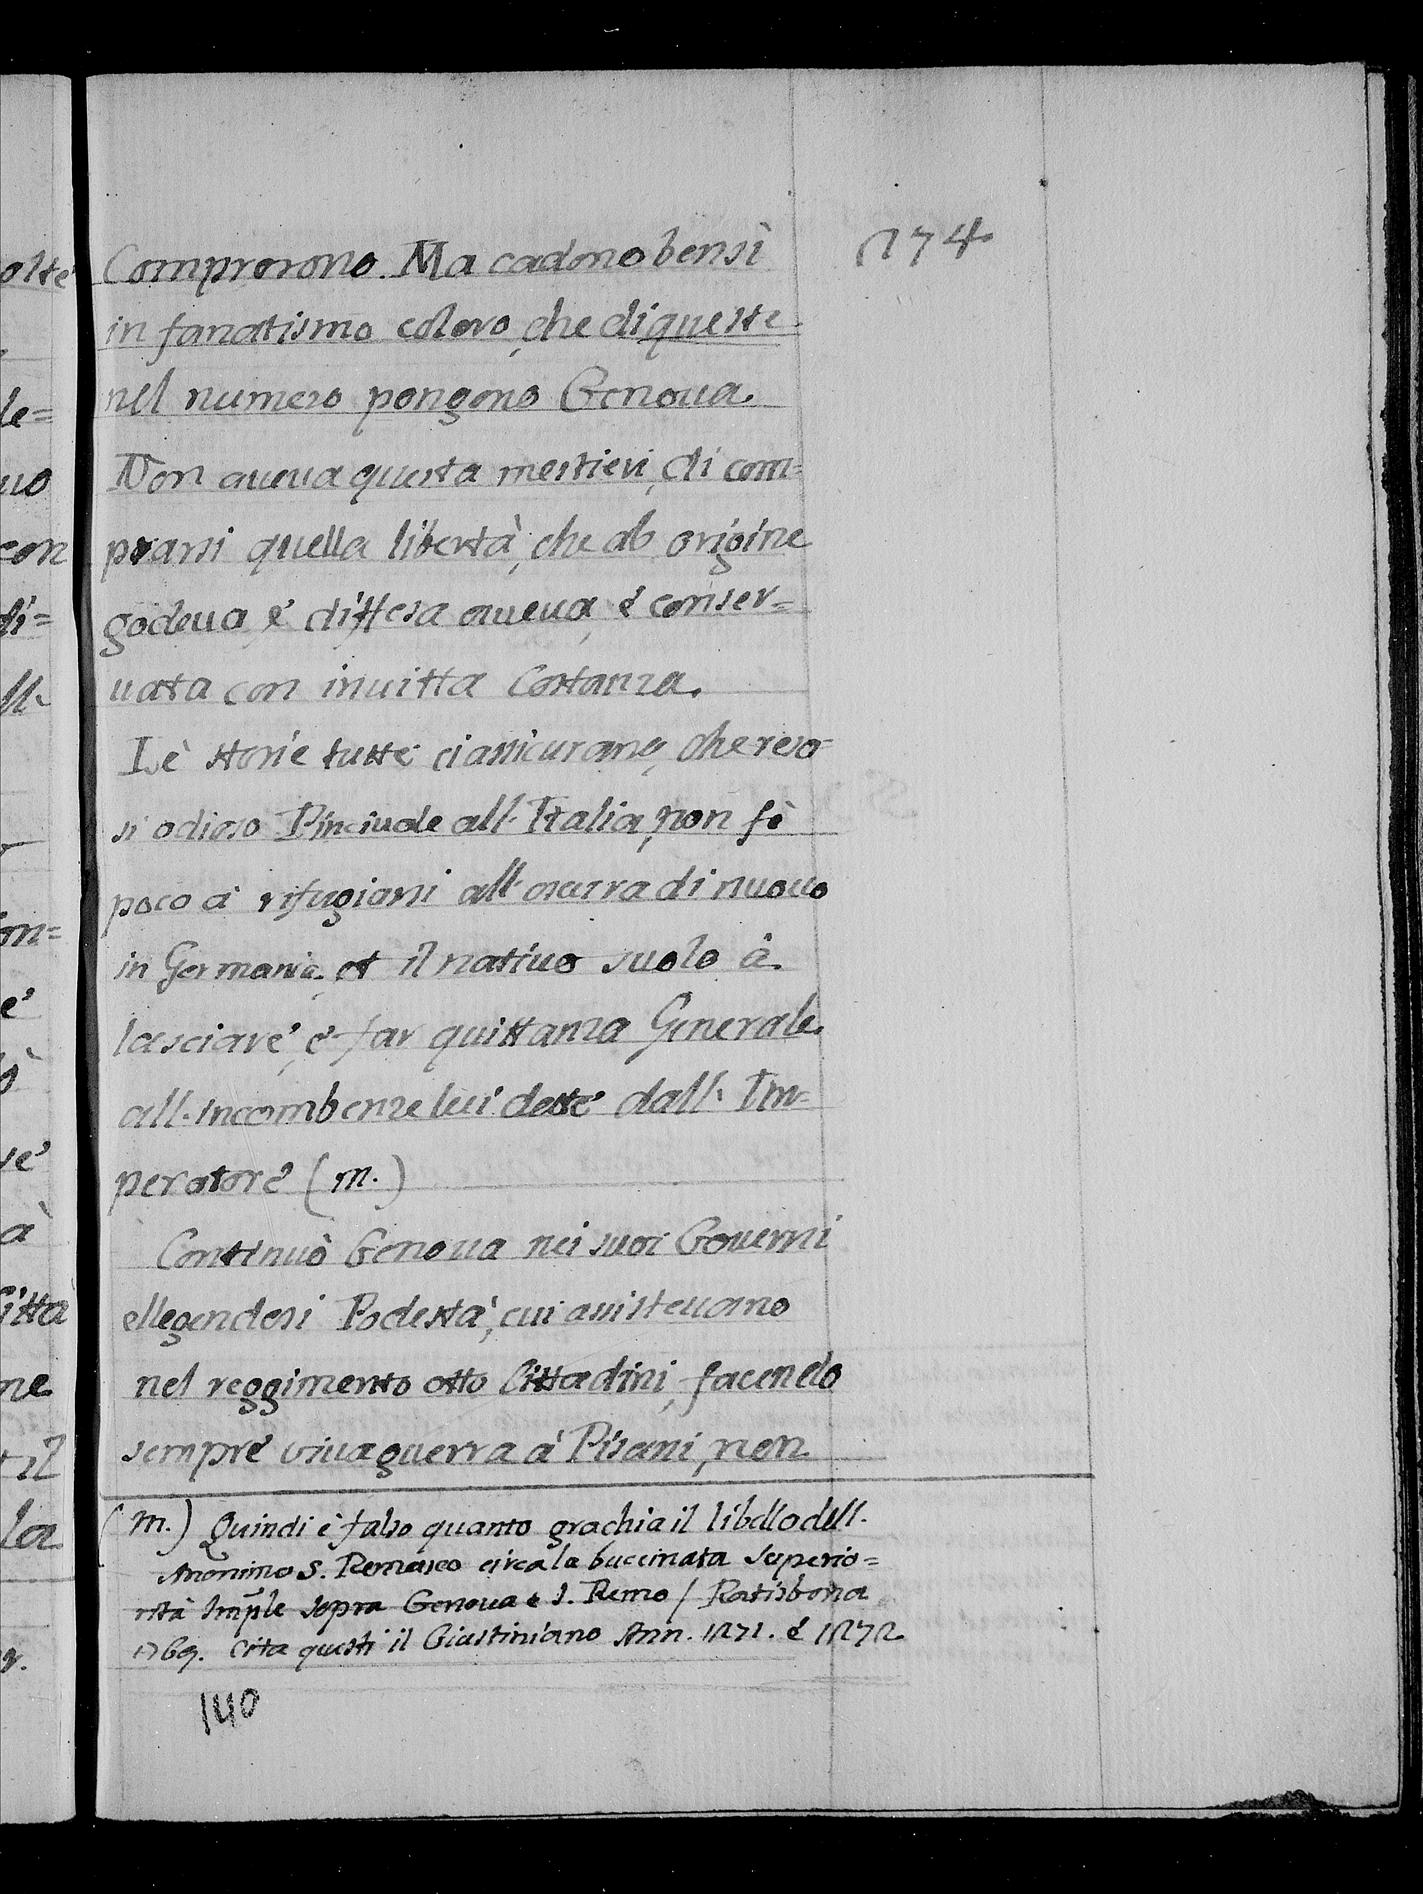 Comprorono. Ma cadono bensì
in fanatismo coloro, che di queste
nel numero pongono Genoua.
Non aueua questa mestieri, di com=
prarsi quella libertà, che ab origine
godeua, è diffesa aueua, è conser=
uata con inuitta Costanza.
Lè storie tutte ci assicurano, che reso=
si odioso Pinciuale all'Italia, non fè
poco à rifugiarsi all'oscura di nuouo
in Germania, et il natiuo suolo à
lasciarè, è far quittanza Generale
all'Incombenze lui dette dall'Im=
peratorè (m.)
Continuò Genoua nei suoi Gouerni
ellegendosi Podestà, cui assisteuano
nel reggimento otto Cittadini, facendo
semprè viua guerra à Pisani, non
1274
(m.) Quindi è falso quanto grachia il libello dell'
Anonimo S. Remasco circa la buccinata superio=
rità Imp̃le sopra Genoua e S. Remo / Ratisbona
1769. Cita questi il Giustiniano Ann. 1271. è 1272
140
olte
le=
uo
con
di=
ll'
on=
è
ò
rè
à
Città
ne
t il
la